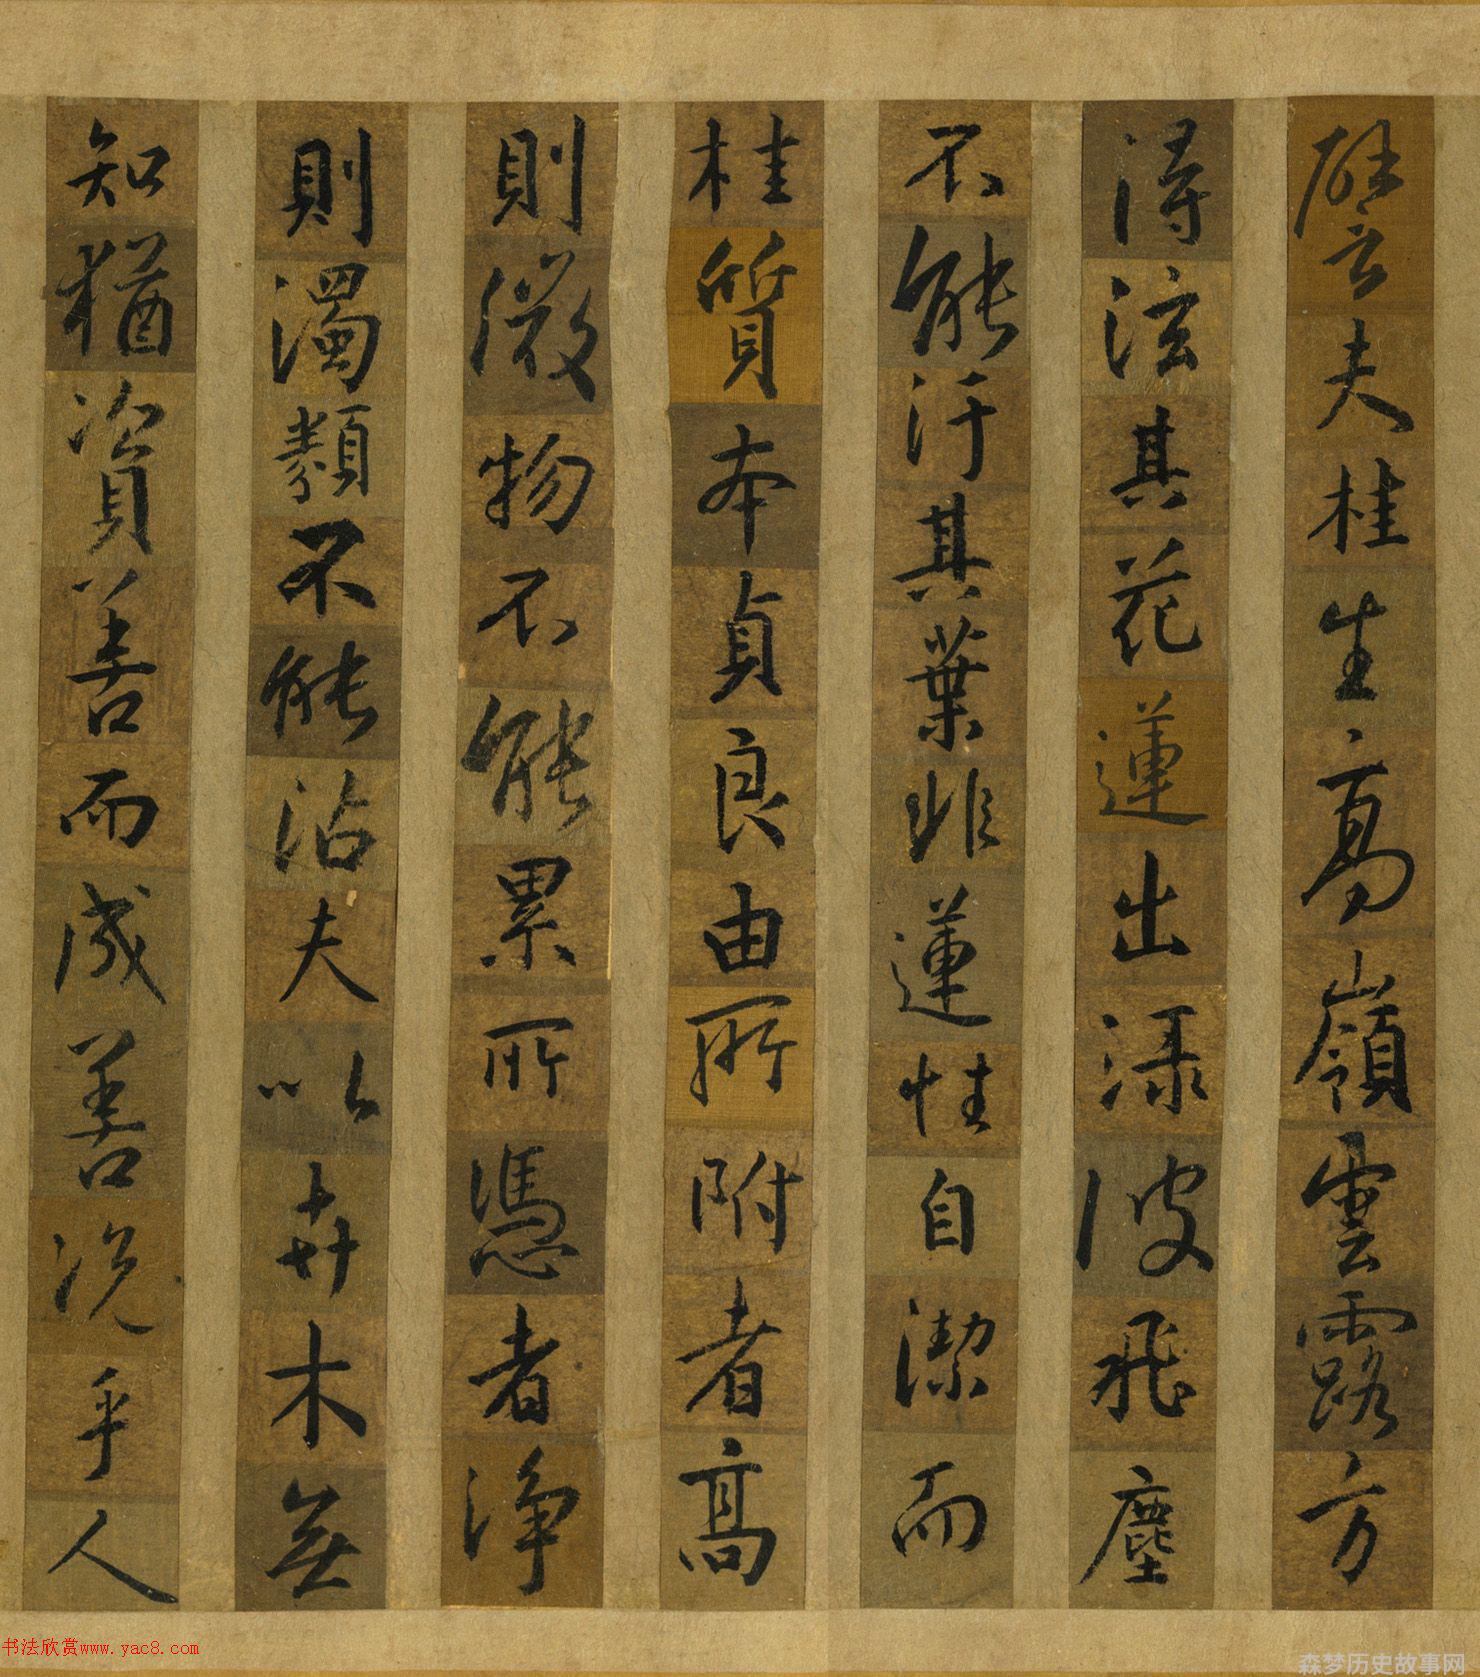 譬夫桂生高嶺雲露方
得泫其花蓮出淥波飛塵
不能汙其葉非蓮性自潔而
桂質本貞良由所附者高
則微物不能累所憑者淨
則濁類不能沾夫以卉木無
知猶資善而成善況乎人
书法欣赏www.yac8.com
森梦历史故事网